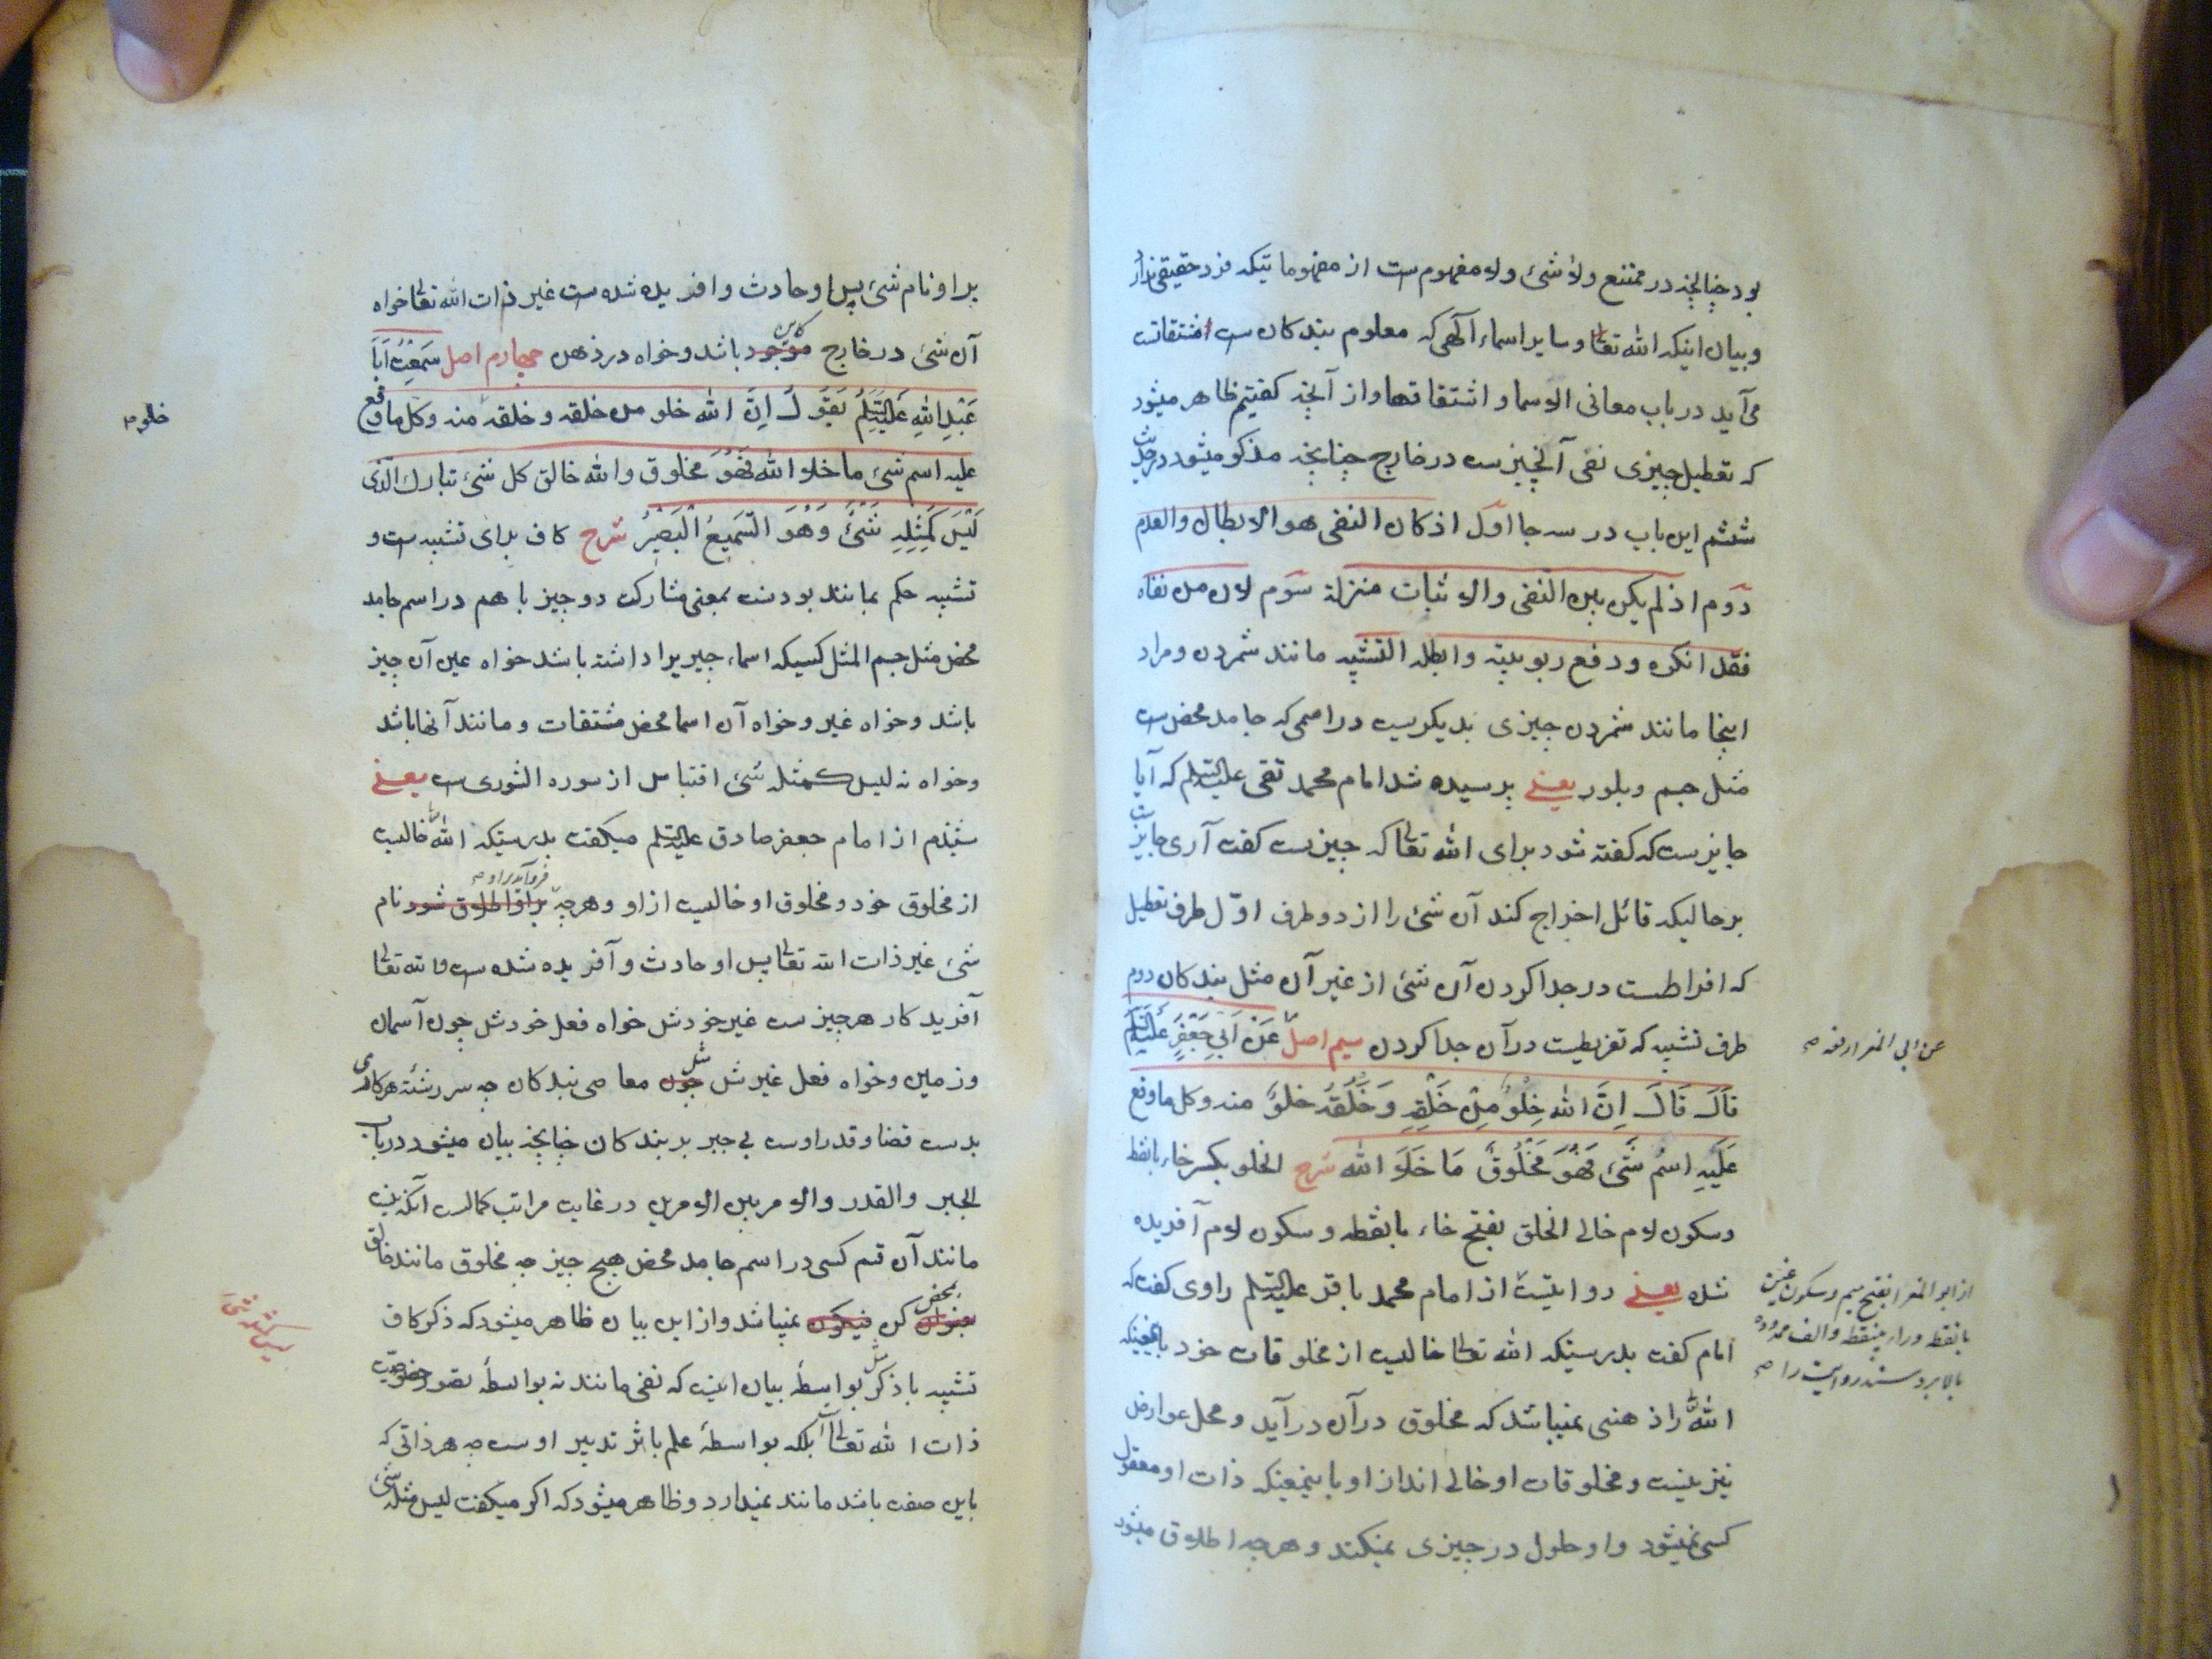 بود چنانچه در ممتنع ولا شئ ولا مفهوم ست از مفهوماتیکه فرد حقیقی ندارد
وبیان اینکه الله تعالی وسایر اسماء الٓهی که معلوم بندکان ست مشتقاتست
می آید در باب معانی الاسما و اشتقاقها واز آنچه کفتیم ظاهر میشود
که تعطیل چیزی نفی آنچیزست در خارج چنانچه مذکور میشود در حدیث
ششم این باب در سه جا اول اذ کان النفی هو الابطال والعدم
دوم اذ لم یکن بین النفی والاثبات منزلة سوم لان من نفاه
فقد انکره ودفع ربوبیته وابطله التشبیه مانند شمردن ومراد
اینجا مانند شمردن چیزی بدیکریست در اسمی که جامد محض ست
مثل جسم وبلور یعنی پرسیده شد امام محمد تقی علیه السلم که آیا
جایزست که کفته شود برای الله تعالی که چیزیست کفت آری جایز ست
برحالیکه قائل اخراج کند آن شئ را از دو طرف اوّل طرف تعطیل
که افراطست در جدا کردن آن شئ از غیر آن مثل بندکان دوم
طرف تشبیه که تفریطست در آن جدا کردن سیم اصل عَنْ اَبِی جَعْفَرٍ عَلَیْهِ السلم
عن ابی المغرا رفعه صح
قَالَ قَالَ اِنَّ الله خِلْوٌ مِنْ خَلْقِهِ وَخَلْقُهُ خلوٌ منه وکل ما وقع
عَلَیْهِ اسْمُ شَئ فَهُوَ مَخْلُوقٌ مَا خَلَا الله شرح الخلو بکسر خاء بانقطه
وسکون لام خالی الخلق بفتح خاء بانقطه وسکون لام آفریده
شده یعنی روایتست از امام محمد باقر علیه السلم راوی کفت که
از ابو المغرا بفتح میم وسکون غین
بانقطه وراء بینقطه والف ممدوده
بالا برد سند روایت را صح
امام کفت بدرستیکه الله تعالی خالیست از مخلوقات خود باینمعنیکه
الله را ذهنی نمیباشد که مخلوق در آن در آید ومحل عوارض
نیز نیست ومخلوقات او خالی اند از او باینمعنیکه ذات او معقول
کسی نمیشود واو حلول در چیزی نمیکند وهرچه اطلاق میشود
بر او نام شئ پس او حادث وافریده شده ست غیر ذات الله تعالی خواه
آن شئ در خارج موجود کاین باشد وخواه در ذهن چهارم اصل سَمِعْتُ اَبَا
عَبْدِ اللهِ عَلَیْهِ السلم یَقُولُ اِنَّ الله خلو من خلقه وخلقه خلو منه وکل ما وقع
علیه اسم شئ ما خلا الله فَهُوَ مخلوق والله خالق کل شئ تبارك الَّذی
لَیْسَ کَمِثْلِهِ شَئٌ وَهُوَ السَّمِیعُ الْبَصِیرُ شرح کاف برای تشبیه ست و
تشبیه حکم بمانند بودنست بمعنی مشارکت دو چیز با هم در اسم جامد
محض مثل جسم المثل کسیکه اسماء چیزیرا داشته باشد خواه عین آن چیز
باشد وخواه غیر وخواه آن اسما محض مشتقات ومانند آنها باشد
وخواه نه لیس کمثله شئ اقتباس از سوره الشوری ست یعنی
شنیدم از امام جعفر صادق علیه السلم میکفت بدرستیکه الله تعالی خالیست
از مخلوق خود ومخلوق او خالیست از او وهرچه بر او اطلاق شود فرو آید بر او صح نام
شئ غیر ذات الله تعالی پس او حادث وآفریده شده ست والله تعالی
آفریدکار هر چیزست غیر خودش خواه فعل خودش چون آسمان
وزمین وخواه فعل غیرش چون مثل معاصی بندکان چه سررشتهٔ هر کاری
بدست قضا وقدر اوست بی جبر بر بندکان چنانچه بیان میشود در باب
الجبر والقدر والامر بین الامرین در غایت مراتب کمالست آنکه نیست
مانند آن قسم کسی در اسم جامد محض هیچ چیز چه مخلوق مانند خالق
بمحض کن فیکون نمیباشد واز این بیان ظاهر میشود که ذکر کاف
تشبیه با ذکر مثل بواسطهٔ بیان اینست که نفی مانند نه بواسطهٔ تصور خصوصیت
ذات الله تعالی ست بلکه بواسطهٔ علم باثر تدبیر اوست چه هر ذاتی که
باین صفت باشد مانند نمیدارد وظاهر میشود که اکر میکفت لیس مثله شئ
خلو صح
لیس کمثله شئ